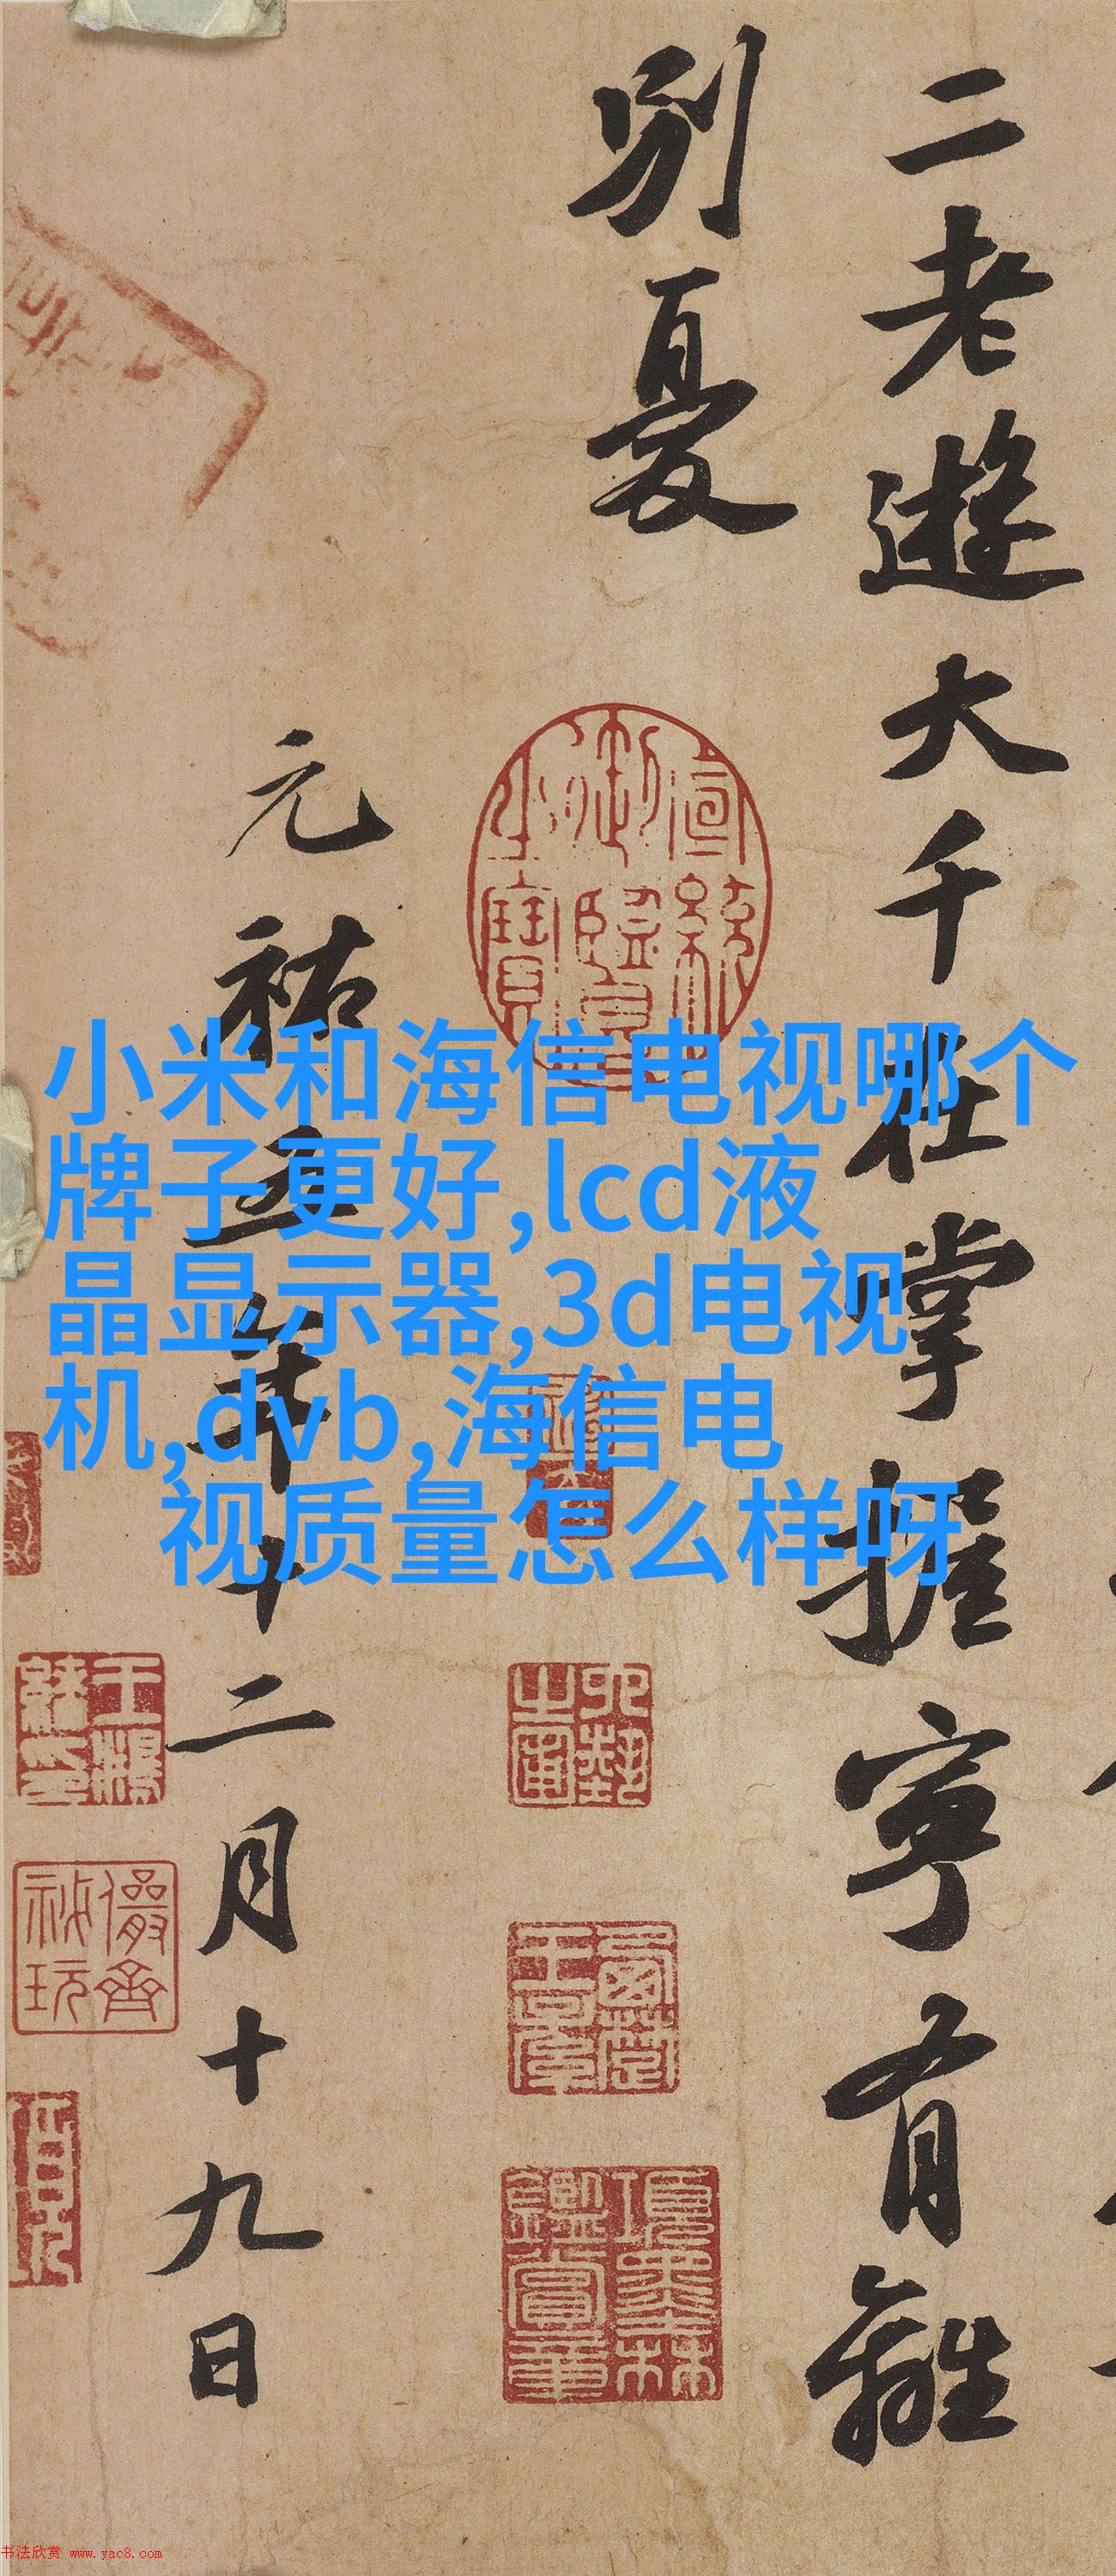 二老遊大千在掌握寧有離
別憂
元祐五年十二月十九日
宣統御覽之寶
項墨林鑑賞章
儼齋秘玩
小米和海信电视哪个
牌子更好,lcd液
晶显示器,3d电视
机,dvb,海信电
视质量怎么样呀
书法欣赏 www.yac8.com